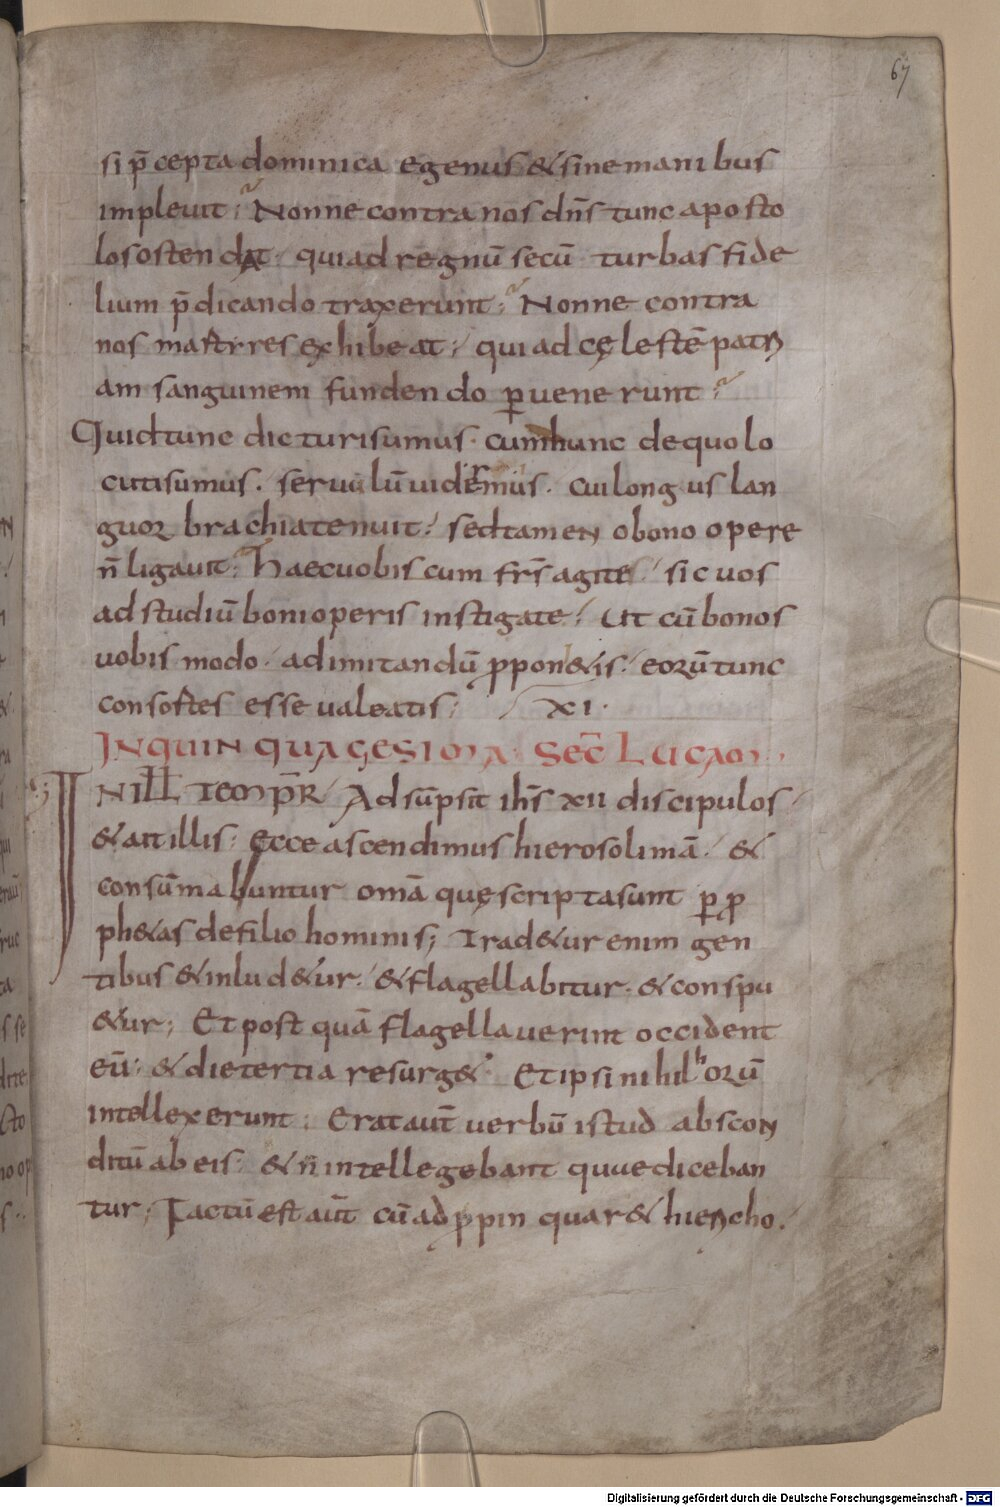 67
si p̄cepta dominica egenus & sine manibus
impleuit; Nonne contra nos dn̄s tunc aposto
los ostendat· qui ad regnū secū turbas fide
lium p̄dicando traxerunt; Nonne contra
nos martires exhibeat; qui ad cęlestē patri
am sanguinem fundendo ꝑuenerunt;
Quid tunc dicturi sumus· cum hunc de quo lo
cuti sumus· seruulū uiderimus· cui longus lan
guor brachia tenuit; sed tamen o bono opere
n̄ ligauit; Haec uobiscum fr̄s agite/ sic uos
ad studiū boni operis instigate; Ut cū bonos
uobis modo· ad imitandū ꝓpon&is· eorū tunc
consortes esse ualeatis; XI·
IN QUINQUAGESIMA· SEC̄ LUCAM·
IN ILL TEMPR̄ Adsūpsit ih̄s xii discipulos·
& ait illis; Ecce ascendimus hierosolimā· &
consūmabuntur om̄a quę scripta sunt ꝑ ꝓ
ph&as de filio hominis; Trad&ur enim gen
tibus & inlud&ur· & flagellabitur· & conspu
&ur; Et post quā flagellauerint occident
eū; & die tertia resurg&· Et ipsi nihil horū
intellexerunt; Erat aut̄ uerbū istud abscon
ditū ab eis· & n̄ intellegebant quae diceban
tur; Factū est aut̄ cū adꝓpinquar& hiericho·
Digitalisierung gefördert durch die Deutsche Forschungsgemeinschaft - DFG